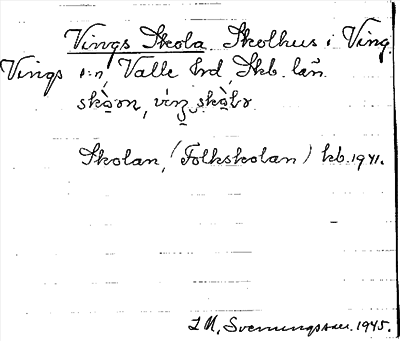 Vings Skola. Skolhus i Ving,
Vings s:n, Valle hrd, Skb. län
Skolan, (Folkskolan) kb. 1941.
I M, Svenungsson. 1945.